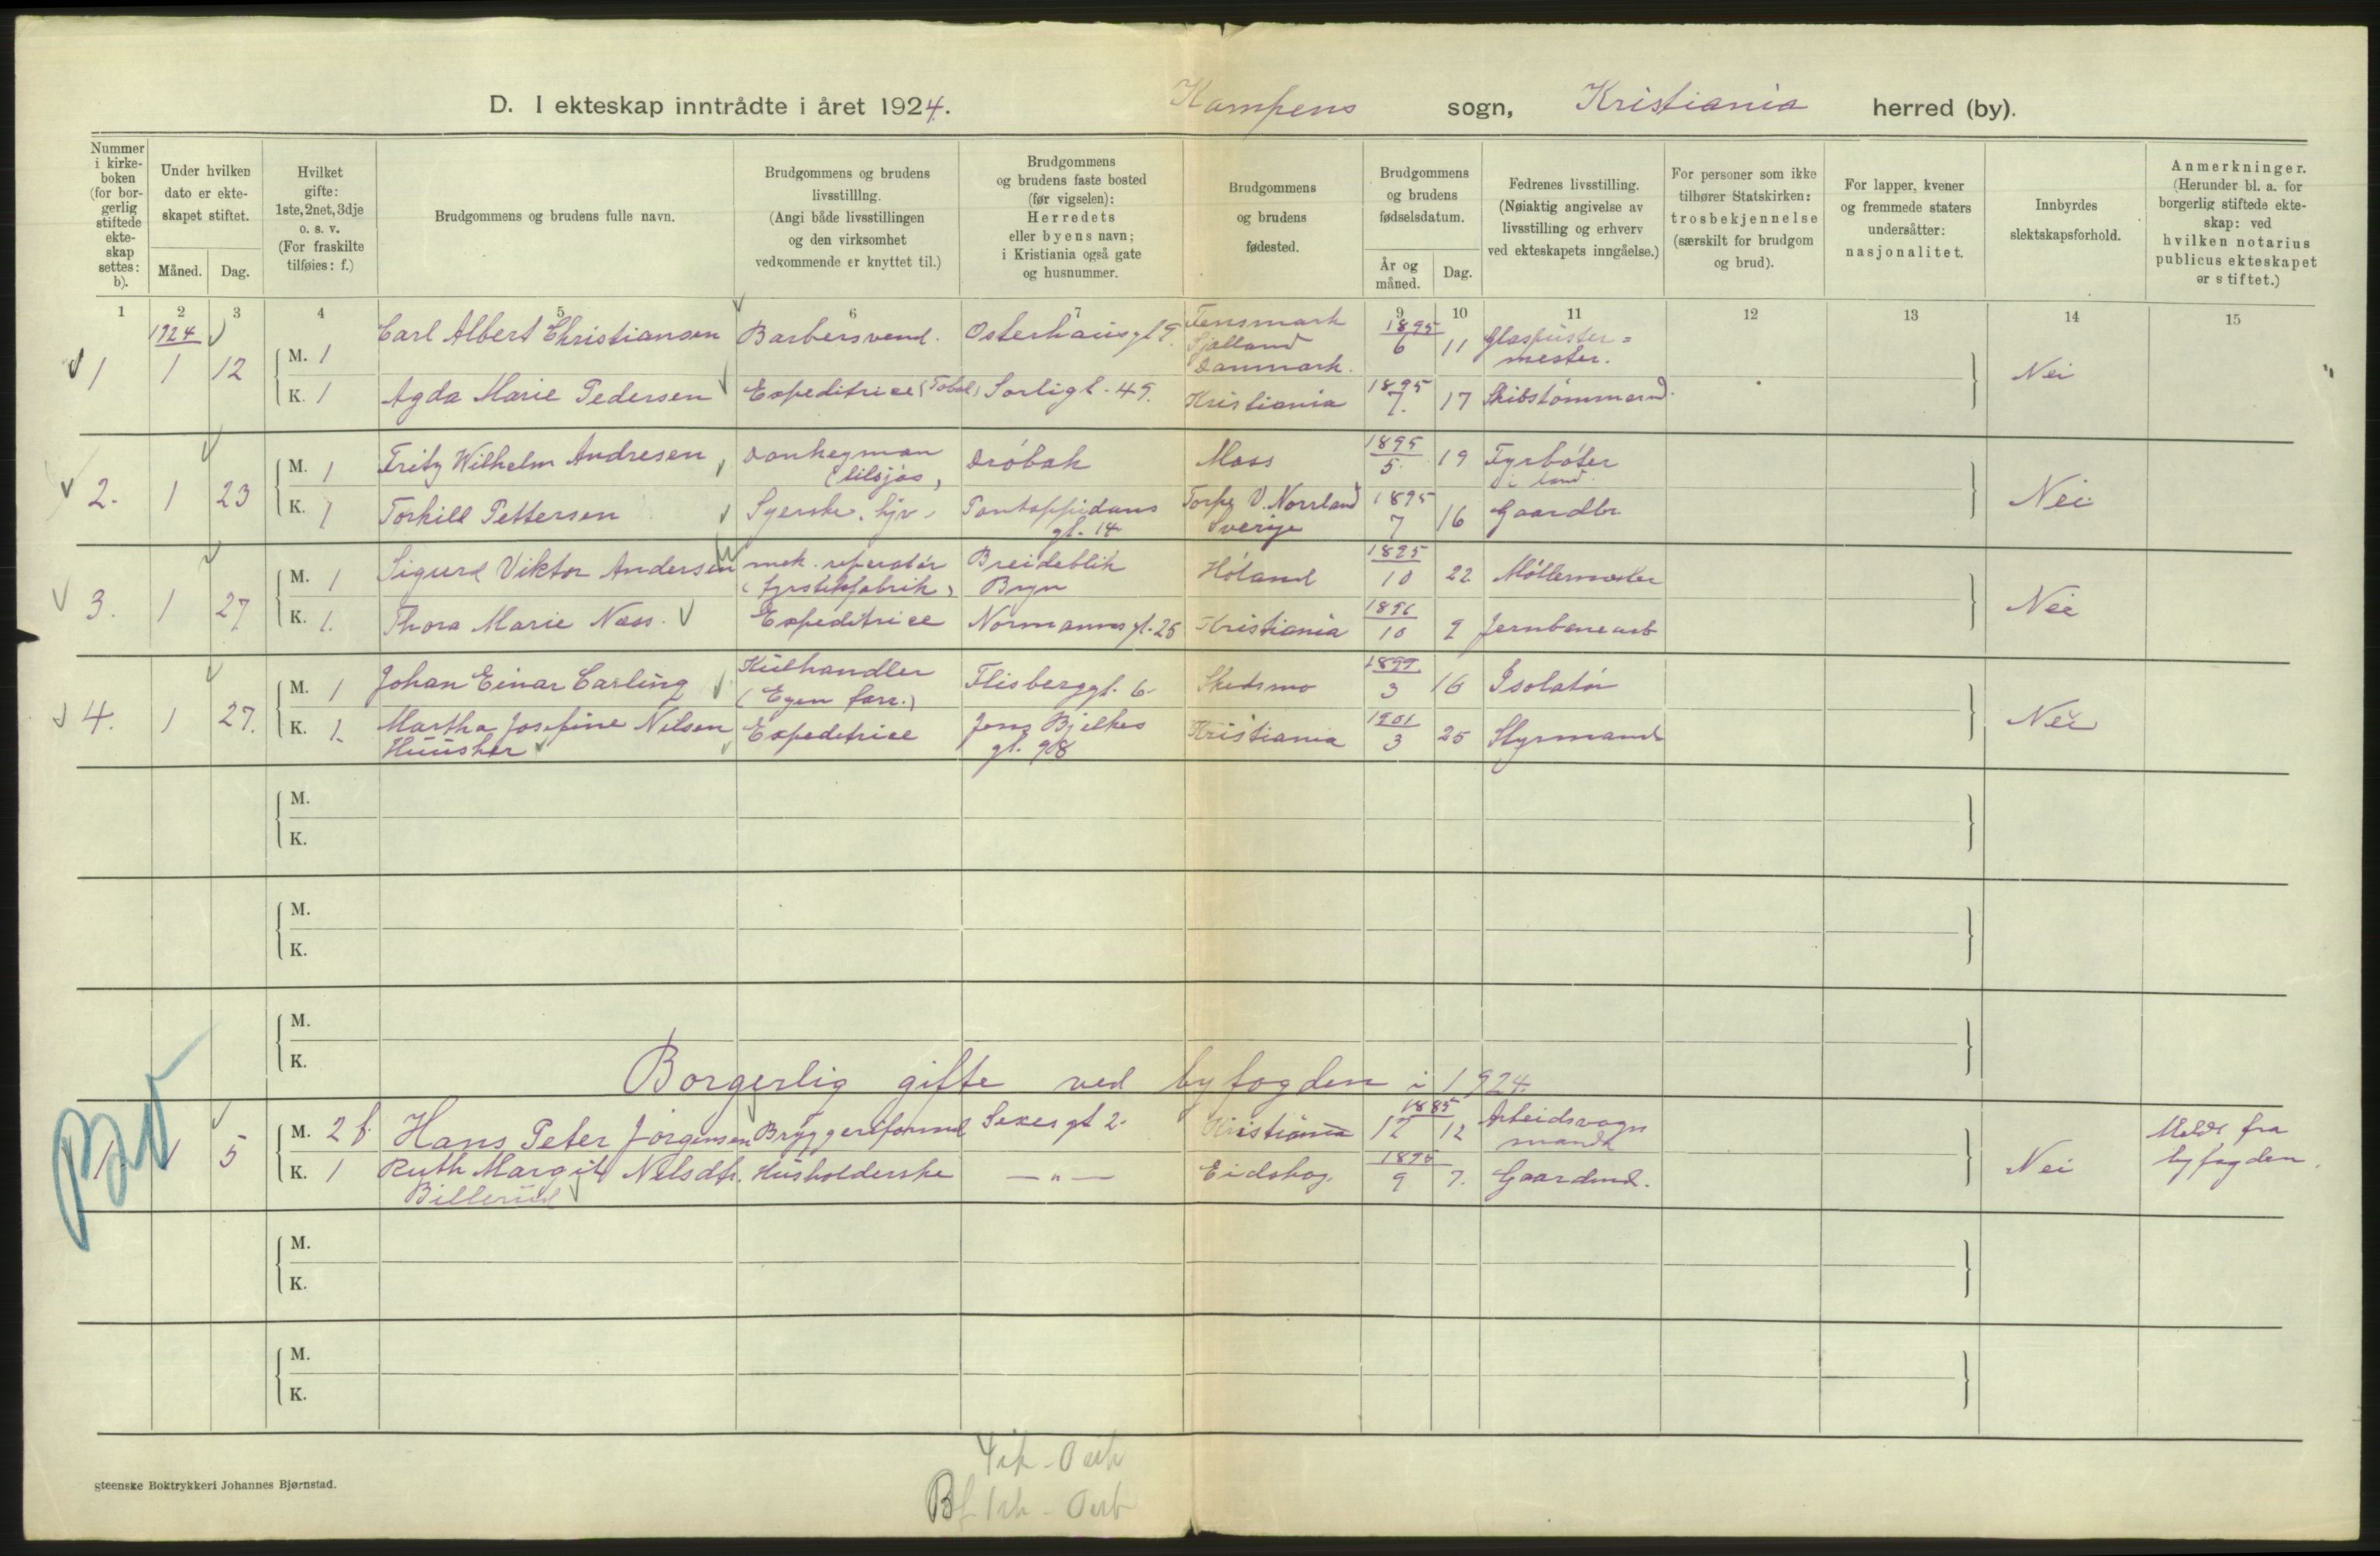 D. I ekteskap inntrådte i året 1924. Kampens sogn, Kristiania herred (by).
Nummer i kirke-boken (for bor-gerlig stiftede ekte-skap settes: b).
Under hvilken dato er ekte-skapet stiftet.
Måned. Dag.
Hvilket gifte: 1ste, 2net, 3dje o. s. v. (For fraskilte tilføies: f.)
Brudgommens og brudens fulle navn.
Brudgommens og brudens livsstilllng. (Angi både livsstillingen og den virksomhet vedkommende er knyttet til.)
Brudgommens og brudens faste bosted (før vigselen): Herredets eller byens navn; i Kristiania også gate og husnummer.
Brudgommens og brudens fødested.
Brudgommens og brudens fødselsdatum.
År og måned. Dag.
Fedrenes livsstilling. (Nøiaktig angivelse av livsstilling og erhverv ved ekteskapets inngåelse.)
For personer som ikke tilhører Statskirken: trosbekjennelse (særskilt for brudgom og brud).
For lapper, kvener og fremmede staters undersåtter: nasjonalitet.
Innbyrdes slektskapsforhold.
Anmerkninger. (Herunder bl. a. for borgerlig stiftede ekte-skap: ved hvilken notarius publicus ekteskapet er stiftet.)
1 2 3 4 5 6 7 9 10 11 12 13 14 15
1924
1 1 12 M. 1 Carl Albert Christiansen Barbersvend. Osterhausgt 9. Fensmark Sjælland Danmark. 1895 6 11 Glaspuster=mester.
K. 1 Agda Marie Pedersen Expeditrice (Tobak) Sorligt. 49. Kristiania 1895 7. 17 Skibstømmermd. Nei
2. 1 23 M. 1 Fritz Wilhelm Andresen Donkeyman (tilsjøs) Drøbak Moss 1895 5. 19 Fyrbøter i land.
K. 1 Torhill Pettersen Syerske, hjv. Pontoppidans gt. 14 Torp, V. Norrland Sverige 1895 7 16 Gaardbr. Nei
3. 1 27 M. 1 Sigurd Viktor Andersen mek. reperatør (fyrstikfabrik) Breideblik Bryn Høland 1895 10 22 Møllemester
K. 1. Thora Marie Næss. Expeditrice Normannsgt. 25 Kristiania 1896 10 9 Jernbanearb Nei
4. 1 27. M. 1 Johan Einar Carling Kulhandler (Egen forr.) Flisberggt. 6. Skedsmo 1899 3 16 Isolatør
K. 1. Martha Josefine Nilsen Huusher Expeditrice Jens Bjelkes gt. 98 Kristiania 1901 3 25 Styrmand Nei
M.
K.
M.
K.
M.
K.
Borgerlig gifte ved byfogden i 1924.
1 1 5 M. 2 f. Hans Peter Jørgensen Bryggeriformd Sexesgt 2. Kristiania 1885 12 12 Arbeidsvogn mand
K. 1 Ruth Margit Nilsdtr. Billerud Husholderske —"— Eidskog. 1895 9 7. Gaardmd. Nei Meldt fra byfogden.
M.
K.
M.
K.
Steenske Boktrykkeri Johannes Bjørnstad.